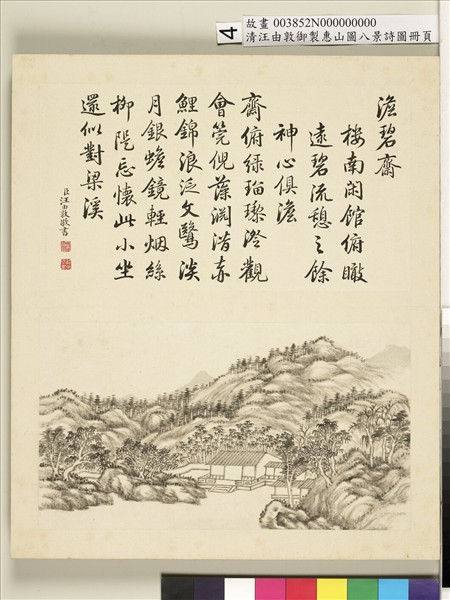 4
故畫 003852N000000000
清汪由敦御製惠山園八景詩圖冊頁
澹碧齋
樓南閑館俯瞰
遠碧流憩之餘
神心俱澹
齋俯綠瑠瓈澄觀
會筦倪藻淵潛赤
鯉錦浪泛文鷖淡
月銀蟾鏡輕烟絲
柳隄忘懷此小坐
還似對梁溪
臣汪由敦敬書